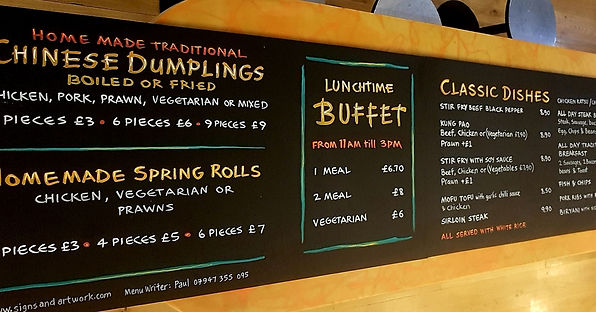 HOME MADE TRADITIONAL
CHINESE DUMPLINGS
BOILED OR FRIED
CHICKEN, PORK, PRAWN, VEGETARIAN OR MIXED
PIECES £3 • 6 PIECES £6 • 9 PIECES £9
HOMEMADE SPRING ROLLS
CHICKEN, VEGETARIAN OR
PRAWNS
PIECES £3 • 4 PIECES £5 • 6 PIECES £7
www.signsandartwork.com Menu Writer: Paul 07947 355 095
LUNCHTIME
BUFFET
FROM 11AM till 3PM
1 MEAL £6.70
2 MEAL £8
VEGETARIAN £6
CLASSIC DISHES
STIR FRY BEEF BLACK PEPPER 8.90
KUNG PAO
Beef, Chicken or (Vegetarian £7.90) 8.90
Prawn +£1
STIR FRY WITH SOY SAUCE 8.90
Beef, Chicken or (Vegetables 6.7.90)
Prawn +£1
MOFU TOFU with garlic chilli sauce 8.50
& Chicken
SIRLOIN STEAK 9.90
ALL SERVED WITH WHITE RICE
CHICKEN KATSU
ALL DAY STEAK
Steak, Sausage,
Egg, Chips & Beans
ALL DAY
BREAKFAST
2 Sausages, 2
beans & Toast
FISH & CHIPS
PORK RIBS WITH
BIRYANI WITH